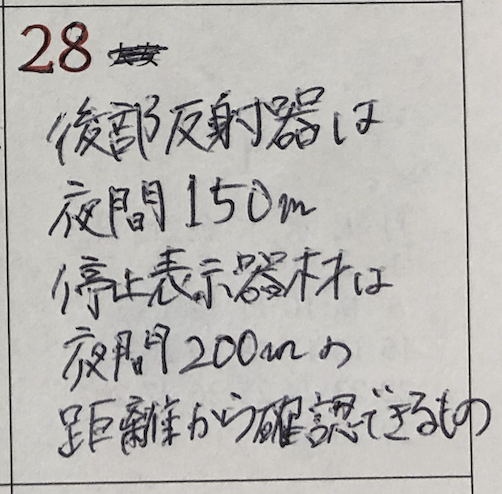 28
後部反射器は
夜間150m
停止表示器材は
夜間200mの
距離から確認できるもの